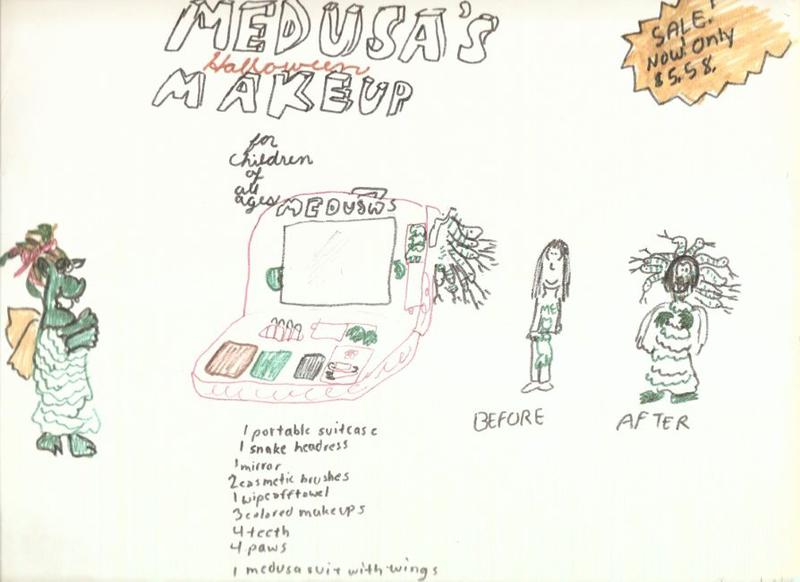 MEDUSA'S
Halloween
MAKEUP
SALE!
Now Only
$5.58.
for
children
of
all
ages
MEDUSA'S
ME
BEFORE
AFTER
1 portable suitcase
1 snake headress
1 mirror
2 cosmetic brushes
1 wipe off towel
3 colored makeups
4 teeth
4 paws
1 medusa suit with wings